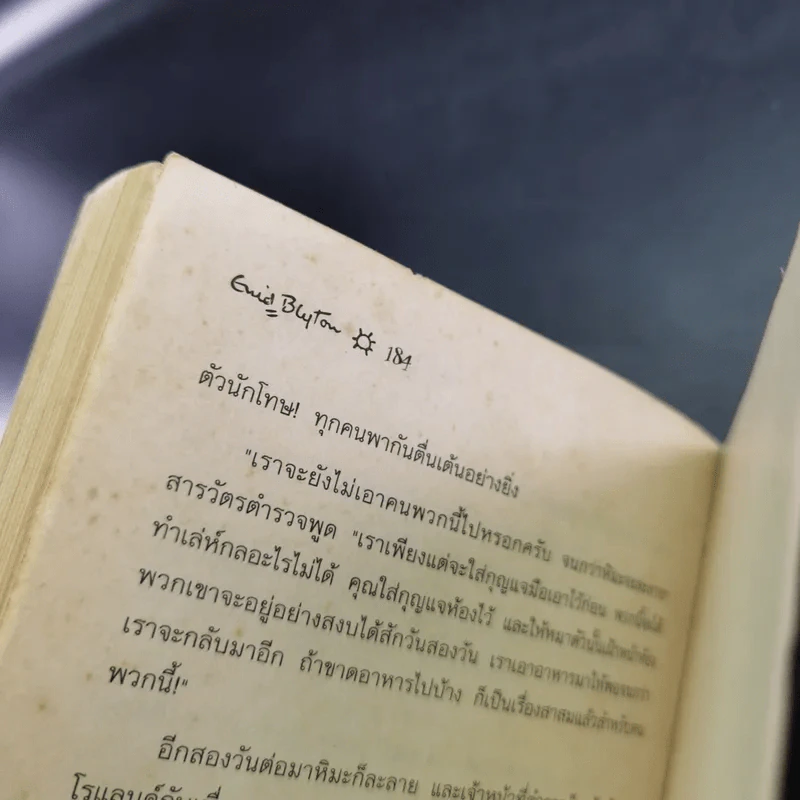 Enid Blyton 184
ตัวนักโทษ! ทุกคนพากันตื่นเต้นอย่างยิ่ง
"เราจะยังไม่เอาคนพวกนี้ไปหรอกครับ จนกว่าหิมะจะละลาย"
สารวัตรตำรวจพูด "เราเพียงแต่จะใส่กุญแจมือเอาไว้ก่อน พวกนี้จะได้
ทำเล่ห์กลอะไรไม่ได้ คุณใส่กุญแจห้องไว้ และให้หมาตัวนั้นเฝ้าหน้าห้อง
พวกเขาจะอยู่อย่างสงบได้สักวันสองวัน เราเอาอาหารมาให้พอจนกว่า
เราจะกลับมาอีก ถ้าขาดอาหารไปบ้าง ก็เป็นเรื่องสาสมแล้วสำหรับคน
พวกนี้!"
อีกสองวันต่อมาหิมะก็ละลาย และเจ้าหน้าที่